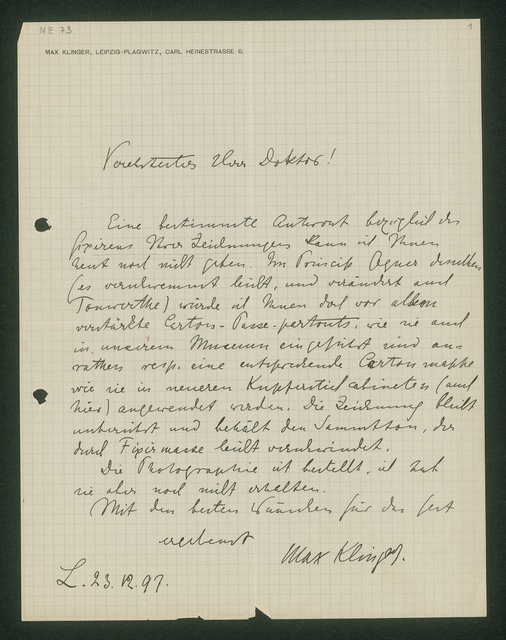 NE 73
1
MAX KLINGER, LEIPZIG-PLAGWITZ, CARL HEINESTRASSE 6.
Verehrtester Herr Doktor!
Eine bestimmte Antwort bezüglich des
fixirens Ihrer Zeichnungen kann ich Ihnen
heut noch nicht geben. Im Princip Gegner desselben
(es verschwemmt leicht, und verändert auch
Tonwerthe) würde ich Ihnen doch vor allem
verstärkte Carton-Passe-partouts, wie sie auch
in unserem Museum eingeführt sind an-
rathen resp. eine entsprechende Cartonmappe
wie sie in neueren Kupferstichcabineten (auch
hier) angewendet werden. Die Zeichnung bleibt
unberührt und behält den Sammtton, der
durch Fixirmasse leicht verschwindet.
Die Photographie ist bestellt, ich hab
sie aber noch nicht erhalten.
Mit den besten Wünschen für das Fest
ergebenst
Max Klinger.
L. 23.12.97.